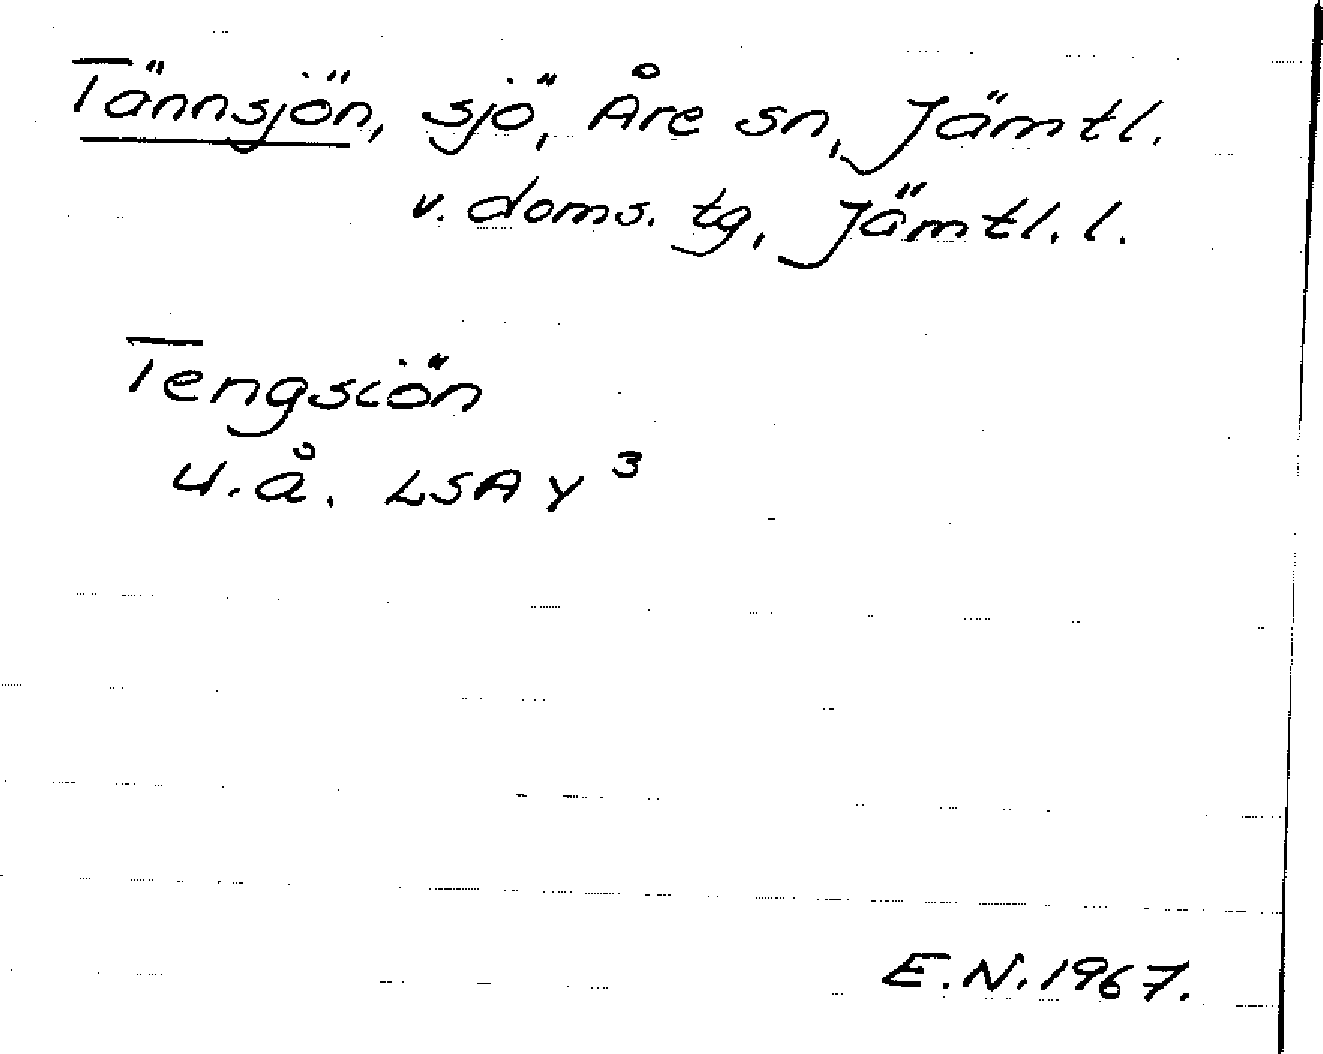 Tännsjön, sjö, Åre sn, Jämtl.
v. doms. tg, Jämtl. l.
Tengsiön
u.å. LSA Y³
E.N. 1967.